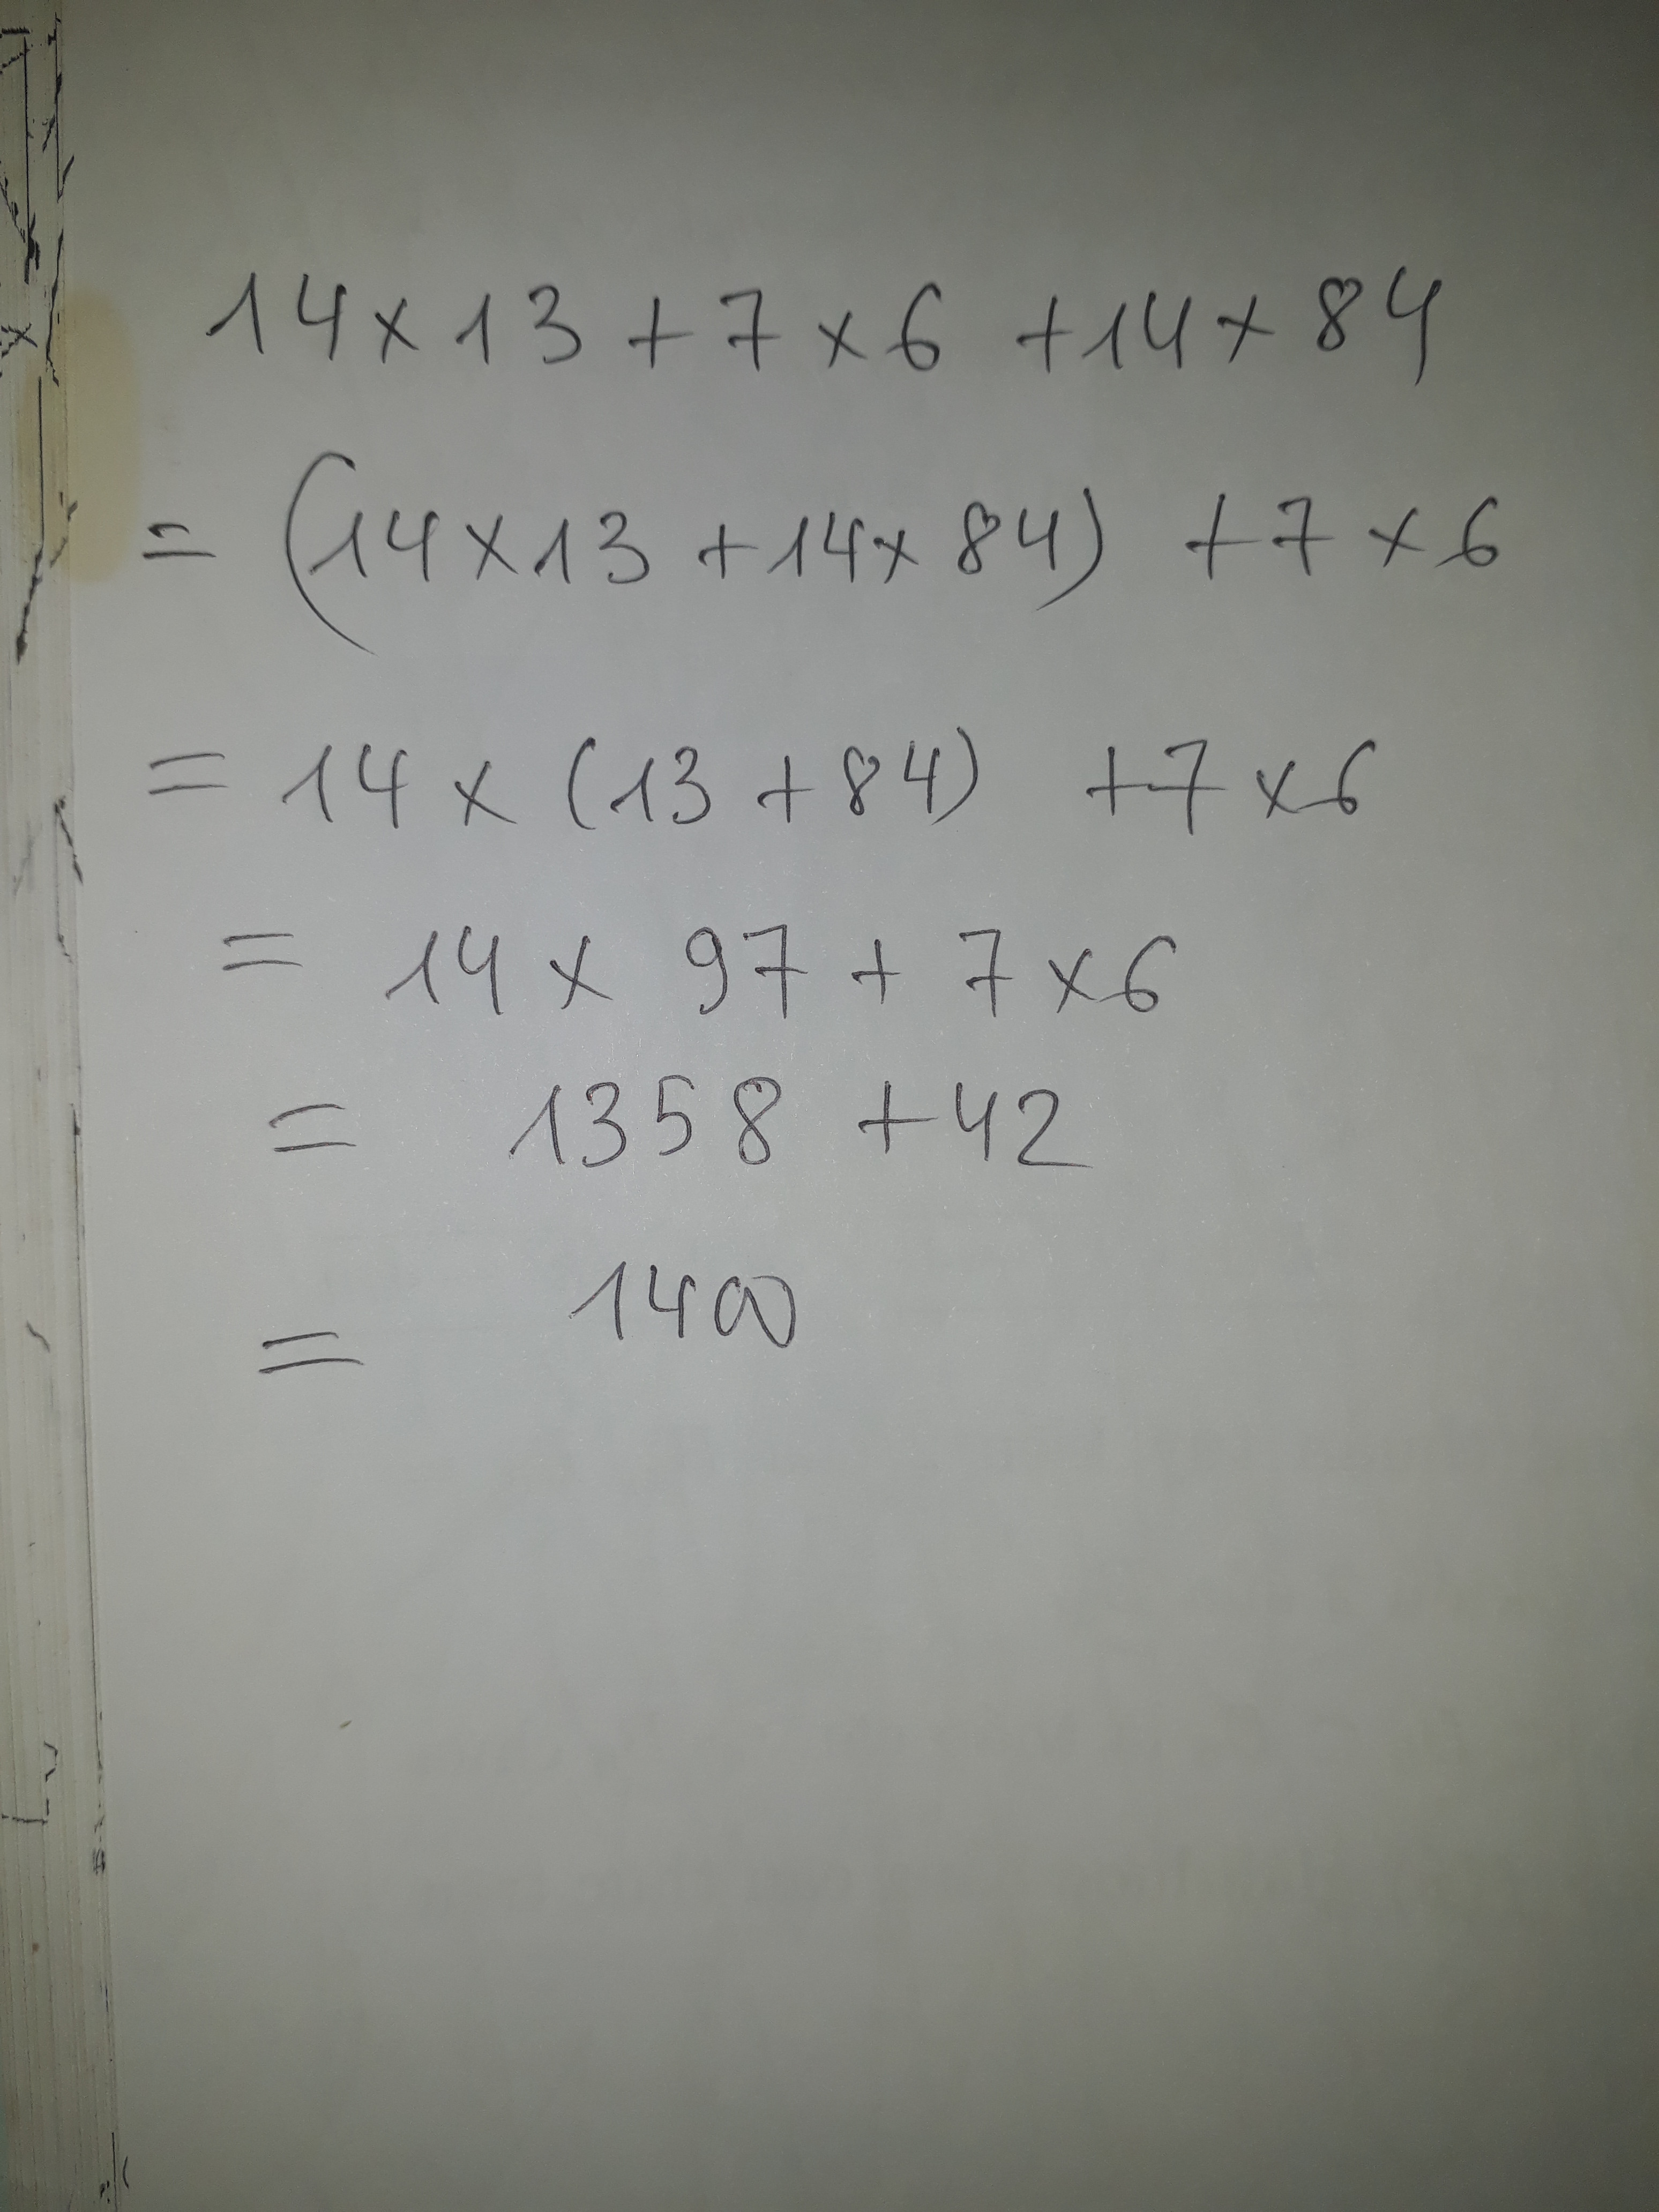 14 × 13 + 7 × 6 + 14 × 84
= (14 × 13 + 14 × 84) + 7 × 6
= 14 × (13 + 84) + 7 × 6
= 14 × 97 + 7 × 6
= 1358 + 42
= 1400